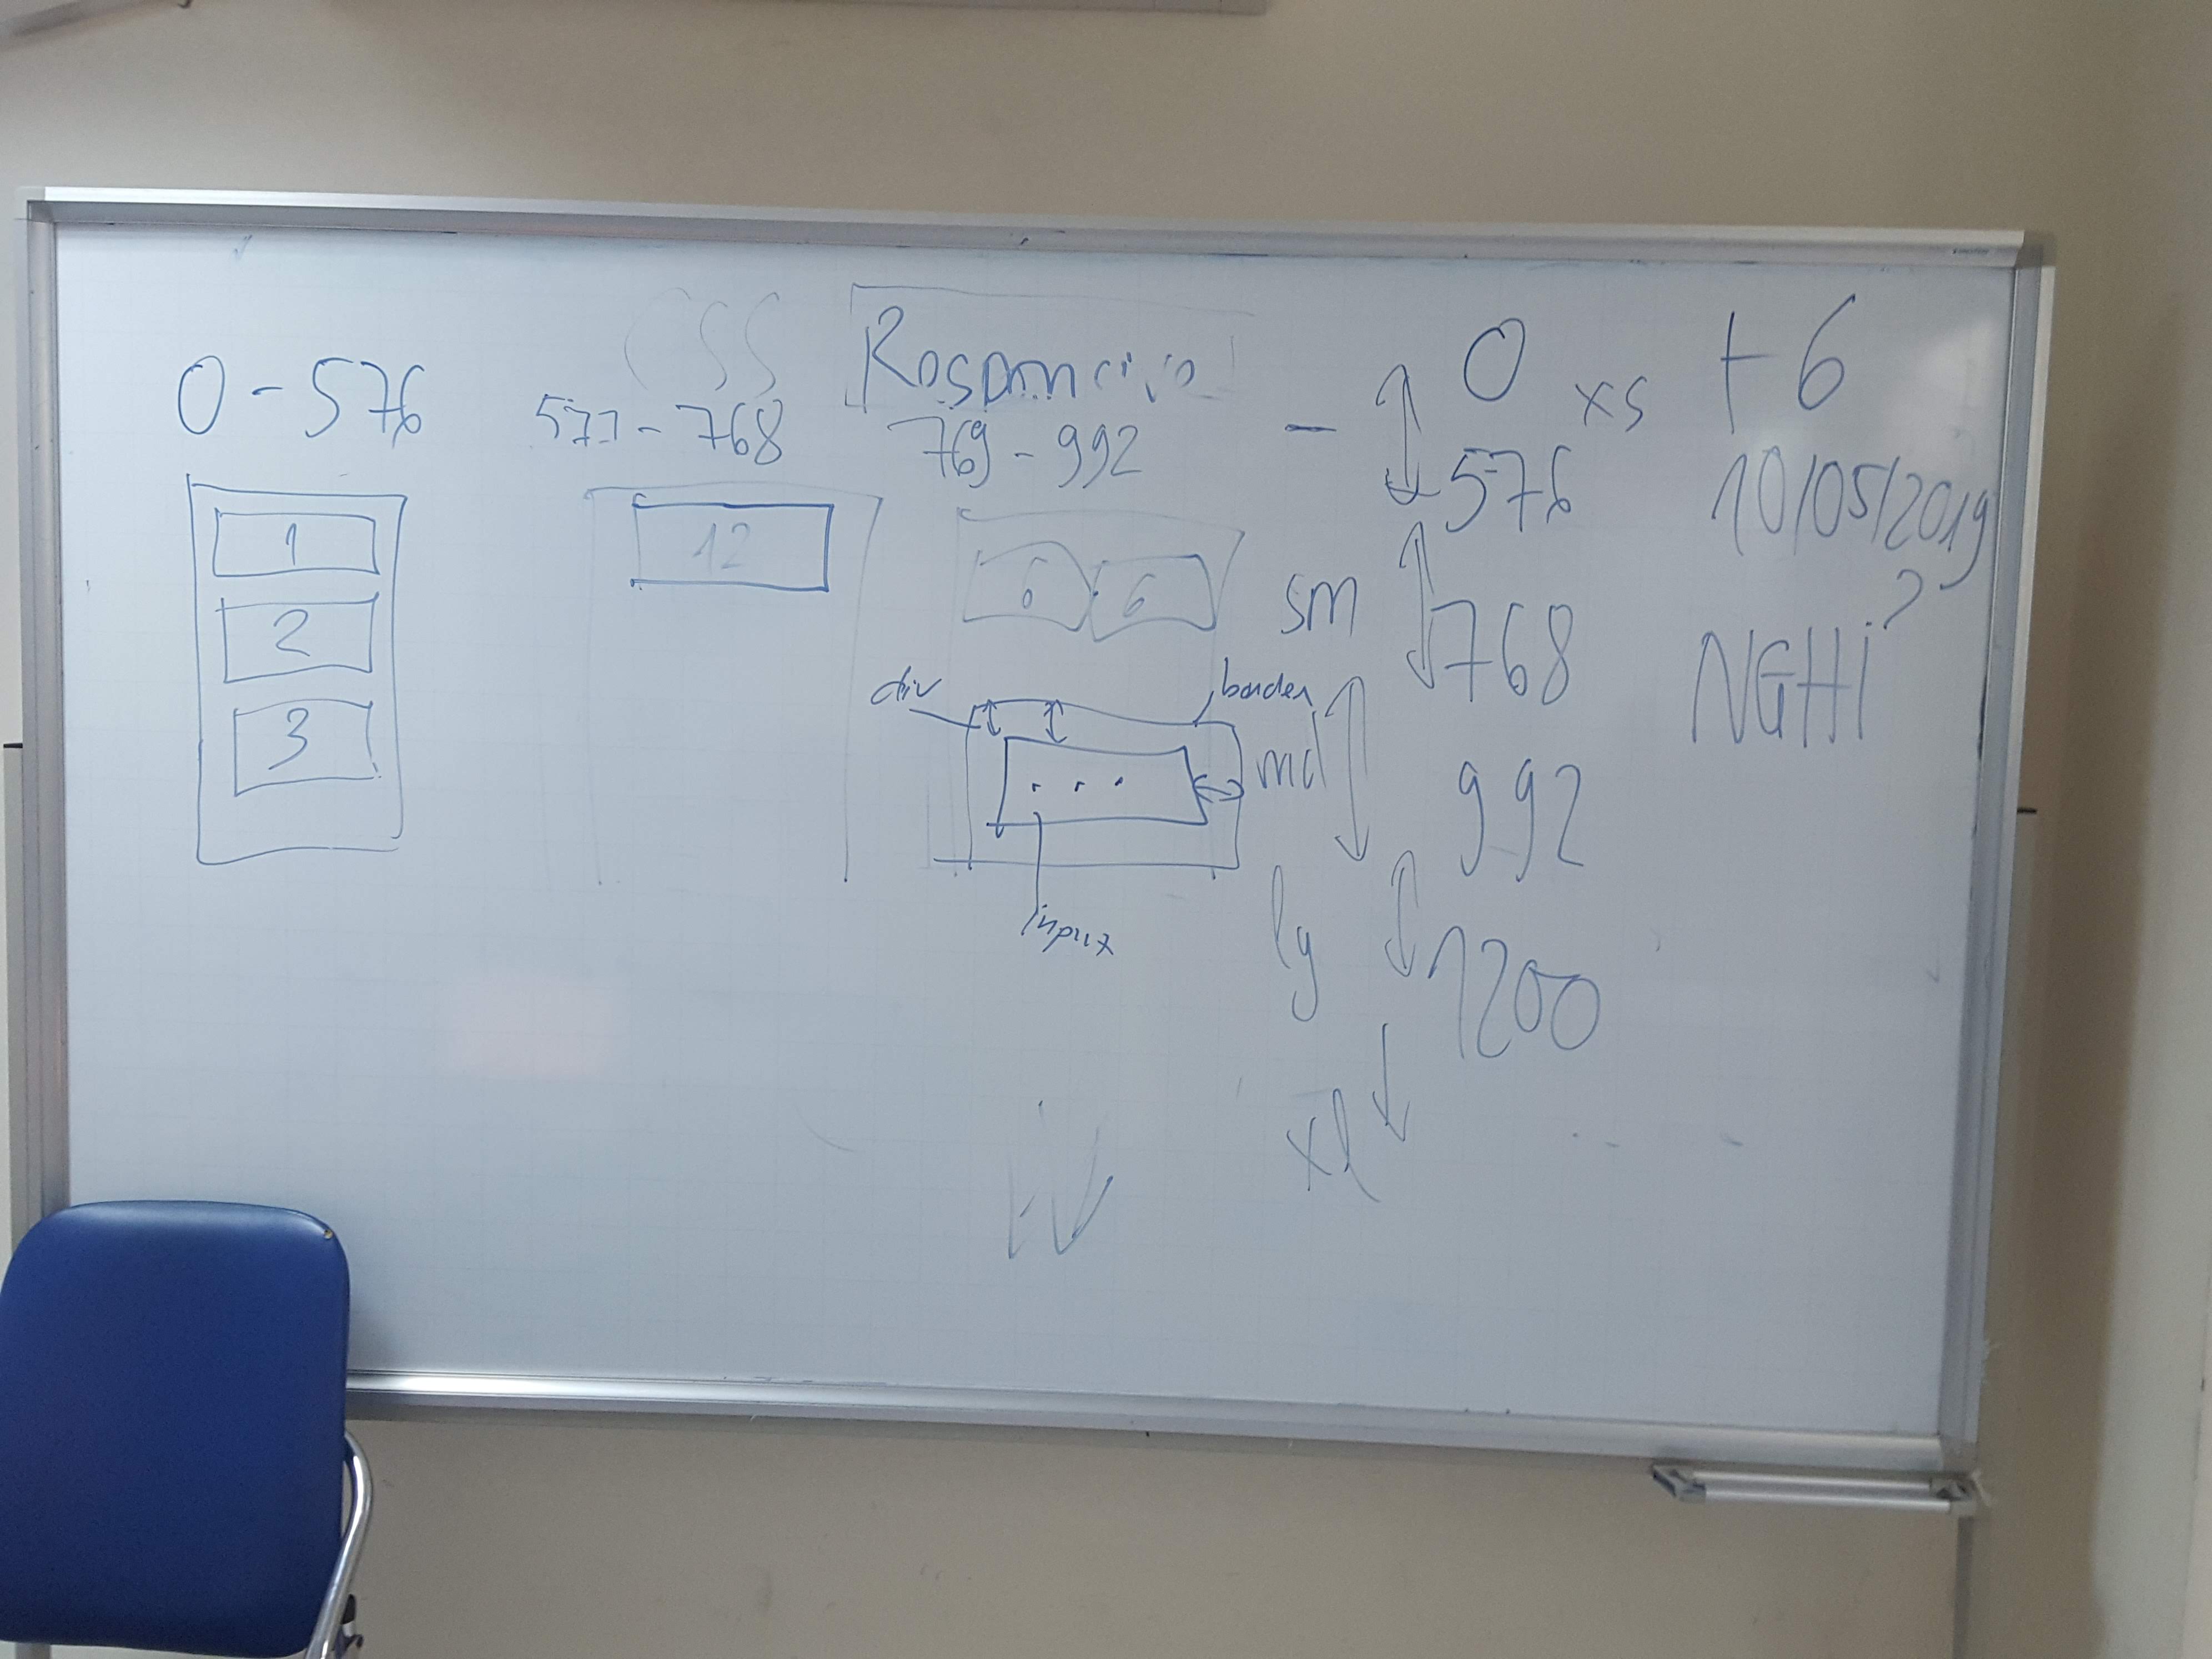 CSS Responcive
0 - 576
577 - 768
769 - 992
1
2
3
12
6 6
div
border
input
- 0 xs
576
sm
768
md
992
lg
1200
xl
T6
10/05/2019
NGHỈ